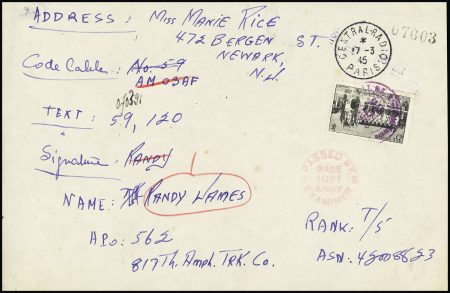 ADDRESS: Miss Manie Rice
472 BERGEN ST.
NEWARK,
N.J.
07603
CENTRAL-RADIO
*
17-3
45
PARIS
Code Cables: No. 59
AM OSAF
TEXT: 59, 120
Signature: RANDY
PASSED BY
BASE
1077
ARMY
EXAMINER
NAME: RANDY WAMES
APO: 562
817Th. Amph. TRK. Co.
RANK: T/5
ASN: